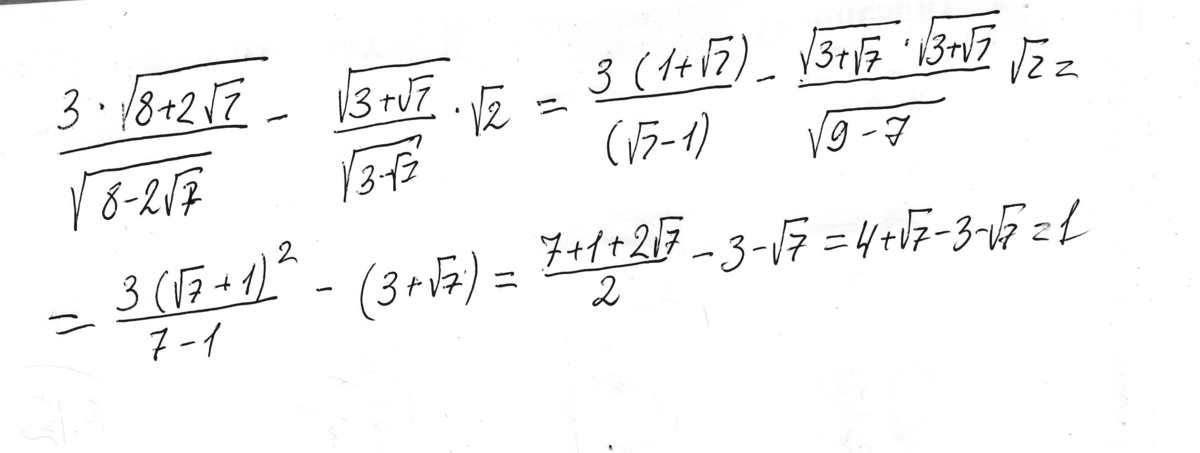 3·√(8+2√7)/√(8-2√7) - √(3+√7)/√(3-√7) · √2 = 3(1+√7)/(√7-1) - √(3+√7)·√(3+√7)/√(9-7) √2 =
= 3(√7+1)²/(7-1) - (3+√7) = (7+1+2√7)/2 - 3-√7 = 4+√7-3-√7 = 1